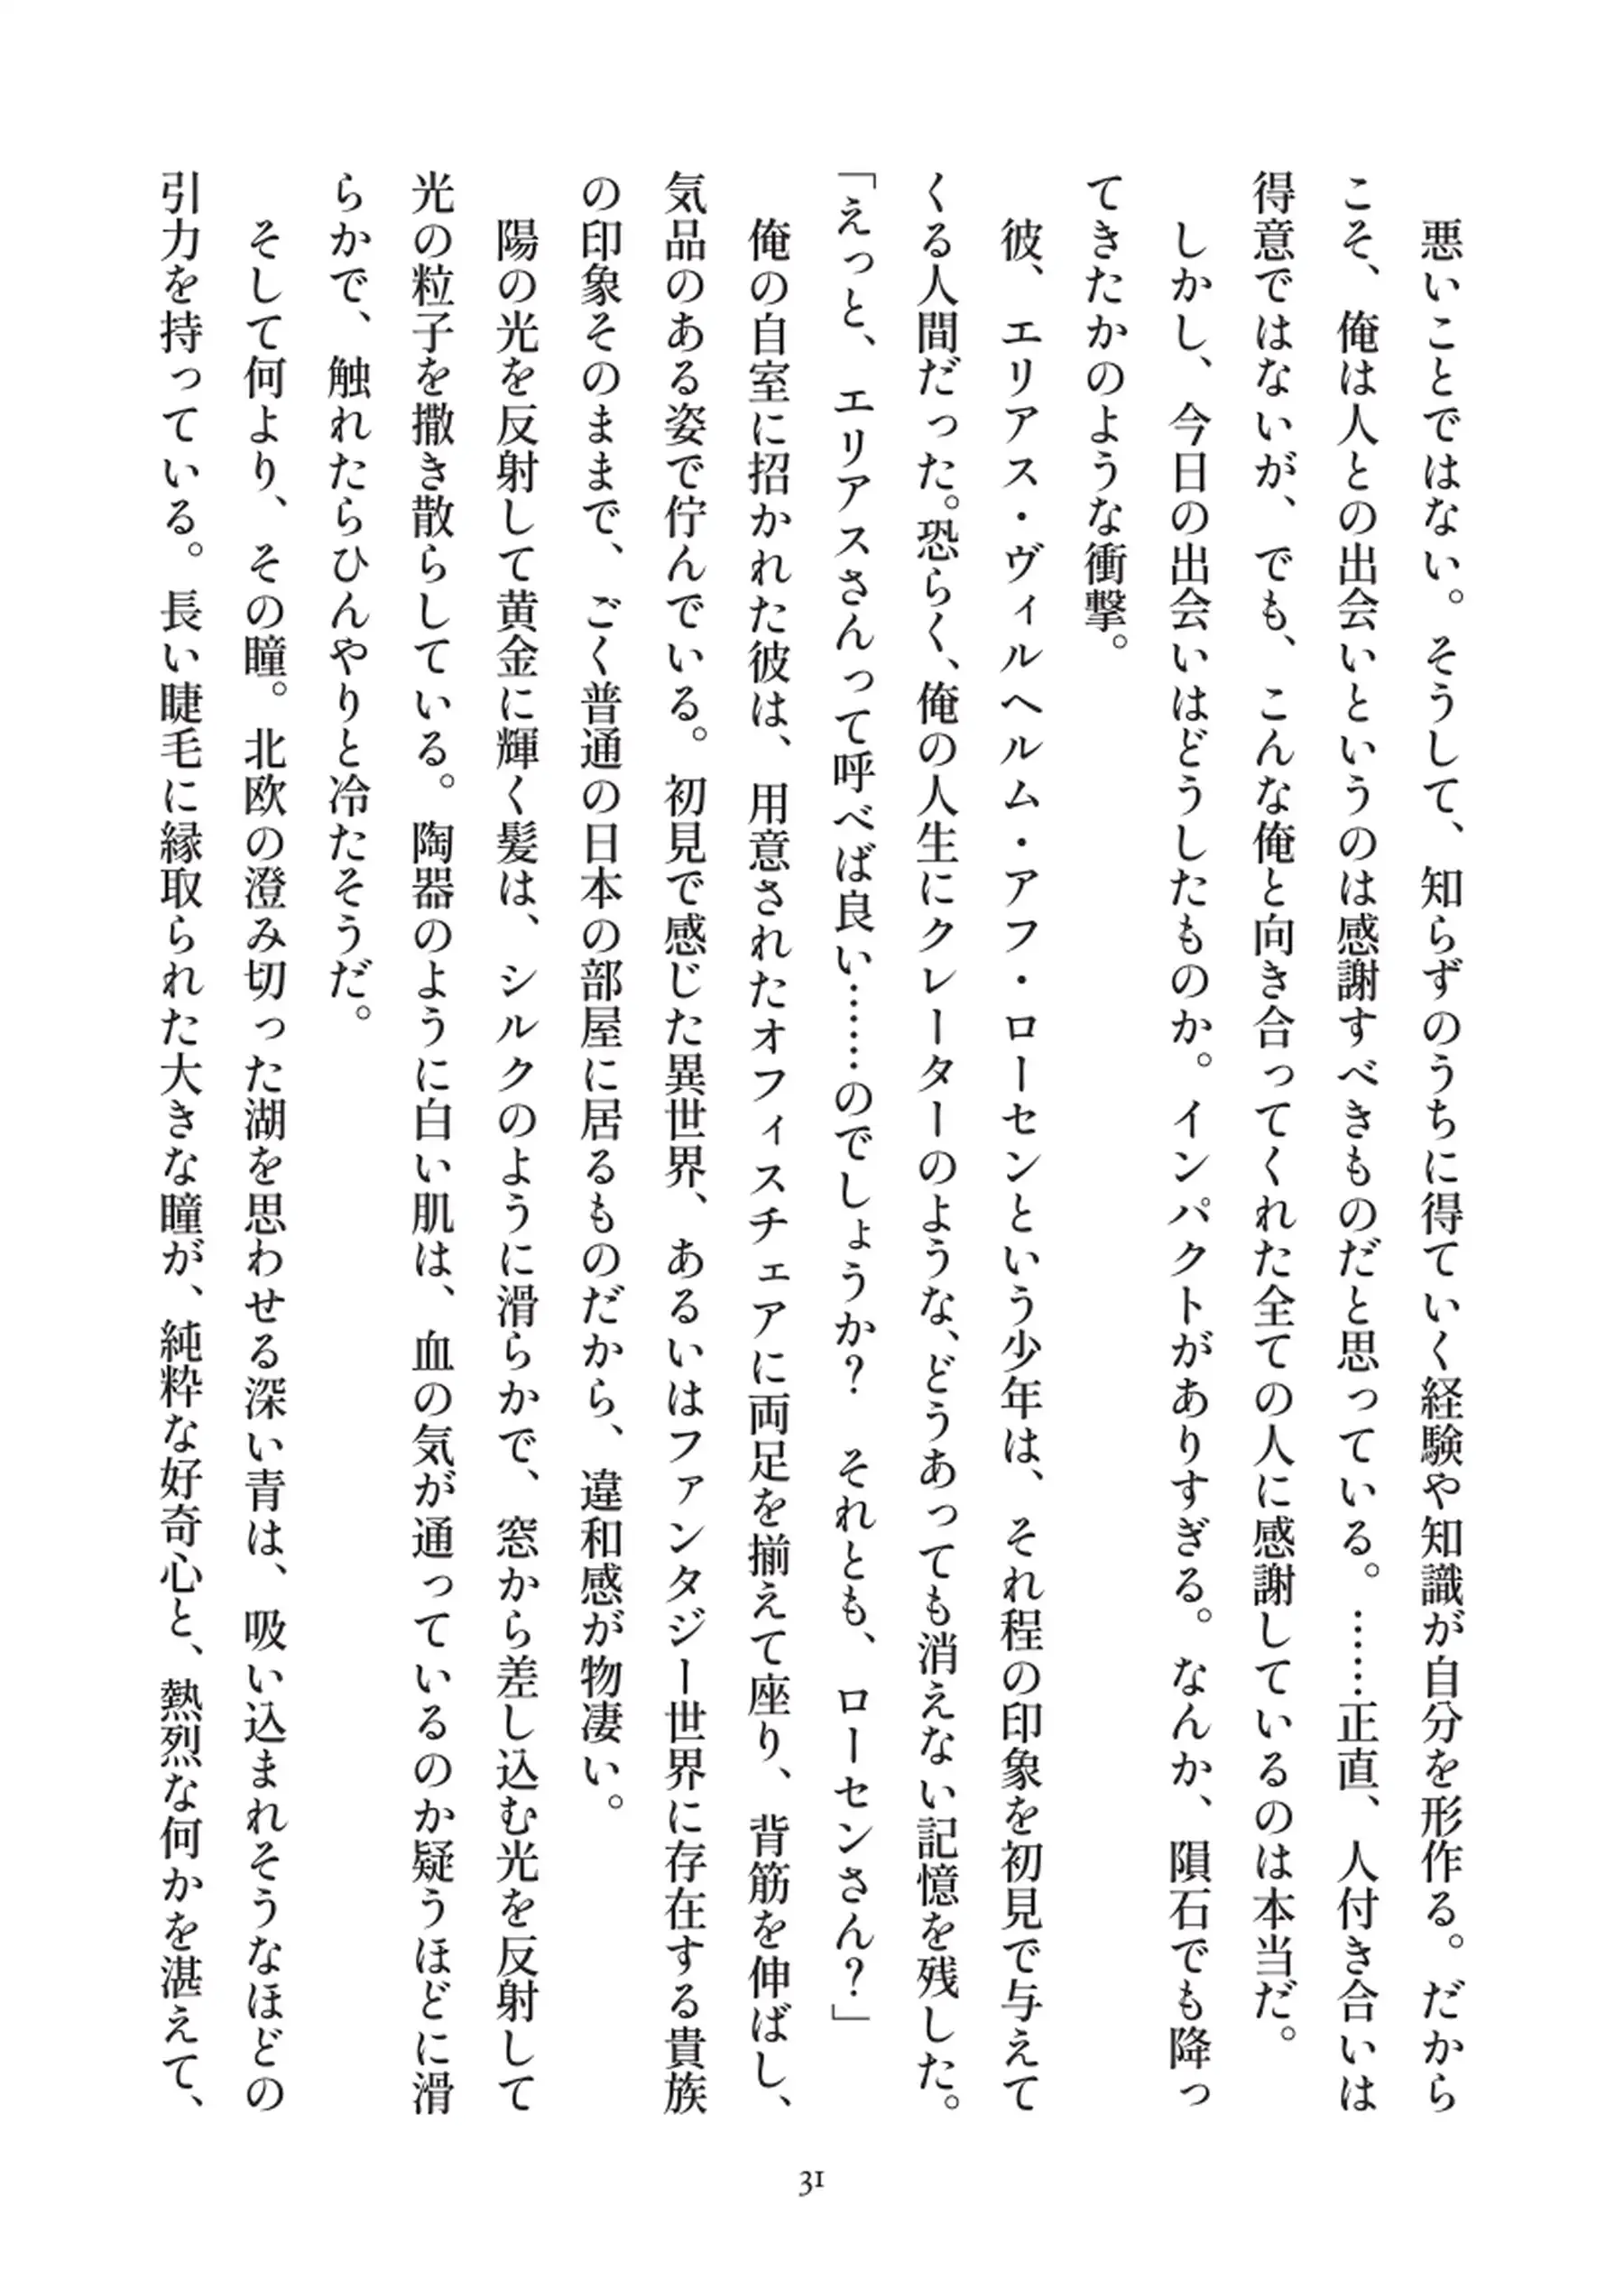 悪いことではない。そうして、知らずのうちに得ていく経験や知識が自分を形作る。だから
こそ、俺は人との出会いというのは感謝すべきものだと思っている。……正直、人付き合いは
得意ではないが、でも、こんな俺と向き合ってくれた全ての人に感謝しているのは本当だ。
　しかし、今日の出会いはどうしたものか。インパクトがありすぎる。なんか、隕石でも降っ
てきたかのような衝撃。
　彼、エリアス・ヴィルヘルム・アフ・ローセンという少年は、それ程の印象を初見で与えて
くる人間だった。恐らく、俺の人生にクレーターのような、どうあっても消えない記憶を残した。
「えっと、エリアスさんって呼べば良い……のでしょうか？　それとも、ローセンさん？」
　俺の自室に招かれた彼は、用意されたオフィスチェアに両足を揃えて座り、背筋を伸ばし、
気品のある姿で佇んでいる。初見で感じた異世界、あるいはファンタジー世界に存在する貴族
の印象そのままで、ごく普通の日本の部屋に居るものだから、違和感が物凄い。
　陽の光を反射して黄金に輝く髪は、シルクのように滑らかで、窓から差し込む光を反射して
光の粒子を撒き散らしている。陶器のように白い肌は、血の気が通っているのか疑うほどに滑
らかで、触れたらひんやりと冷たそうだ。
　そして何より、その瞳。北欧の澄み切った湖を思わせる深い青は、吸い込まれそうなほどの
引力を持っている。長い睫毛に縁取られた大きな瞳が、純粋な好奇心と、熱烈な何かを湛えて、
31